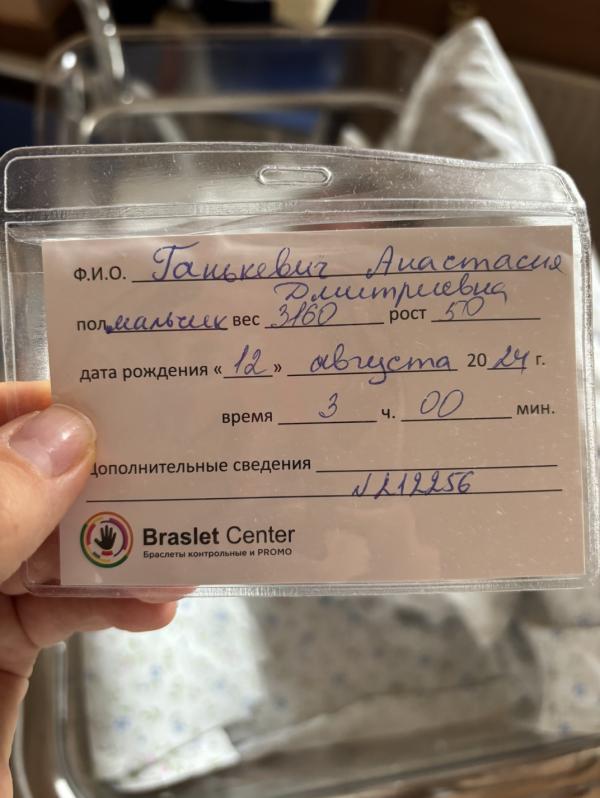 Ф.И.О. Ганькевич Анастасия
Дмитриевна
пол мальчик вес 3160 рост 50
дата рождения «12» августа 2024 г.
время 3 ч. 00 мин.
Дополнительные сведения
N212256
Braslet Center
Браслеты контрольные и PROMO